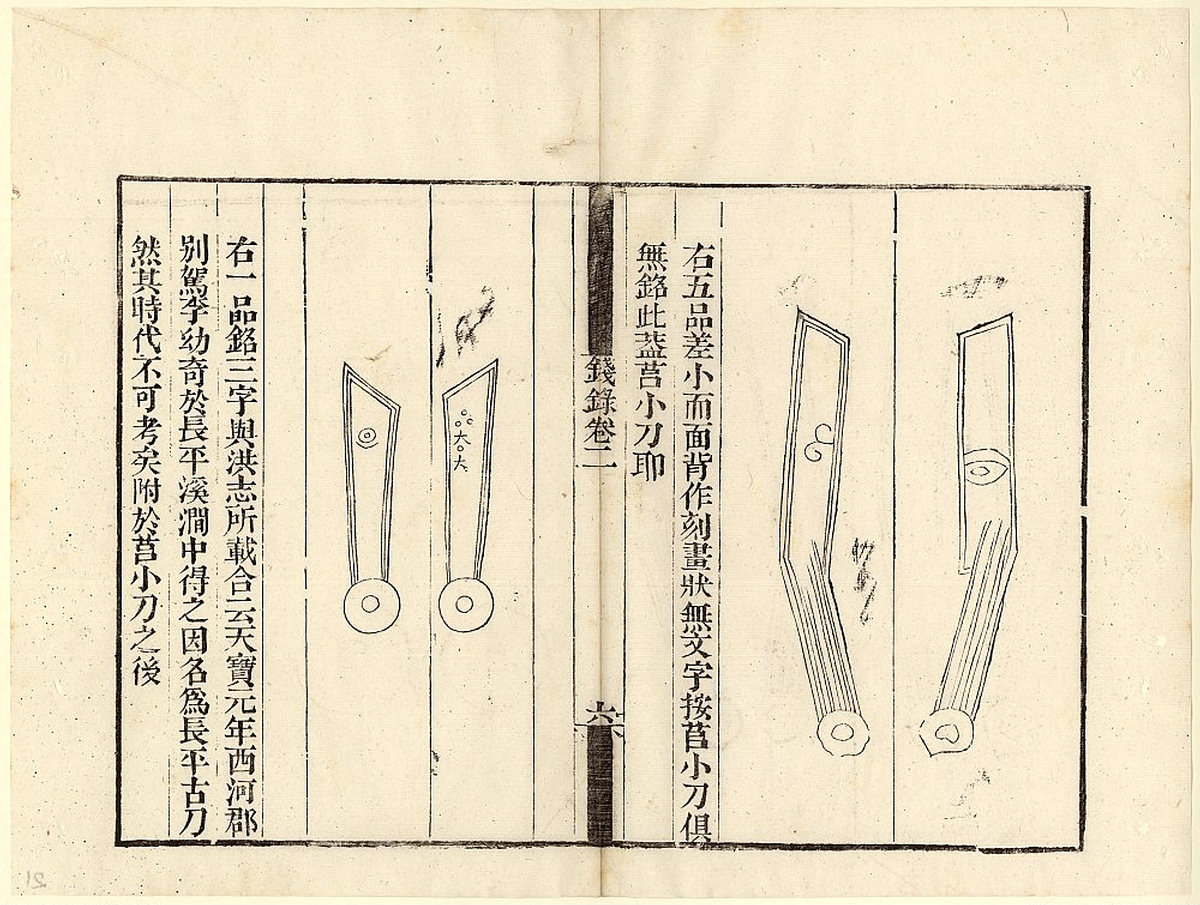 右五品差小而面背作刻畫狀無文字按莒小刀俱
無銘此葢莒小刀耶
錢錄卷二
六
右一品銘三字與洪志所載合云天寶元年西河郡
別駕李幼奇於長平溪澗中得之因名爲長平古刀
然其時代不可考矣附於莒小刀之後